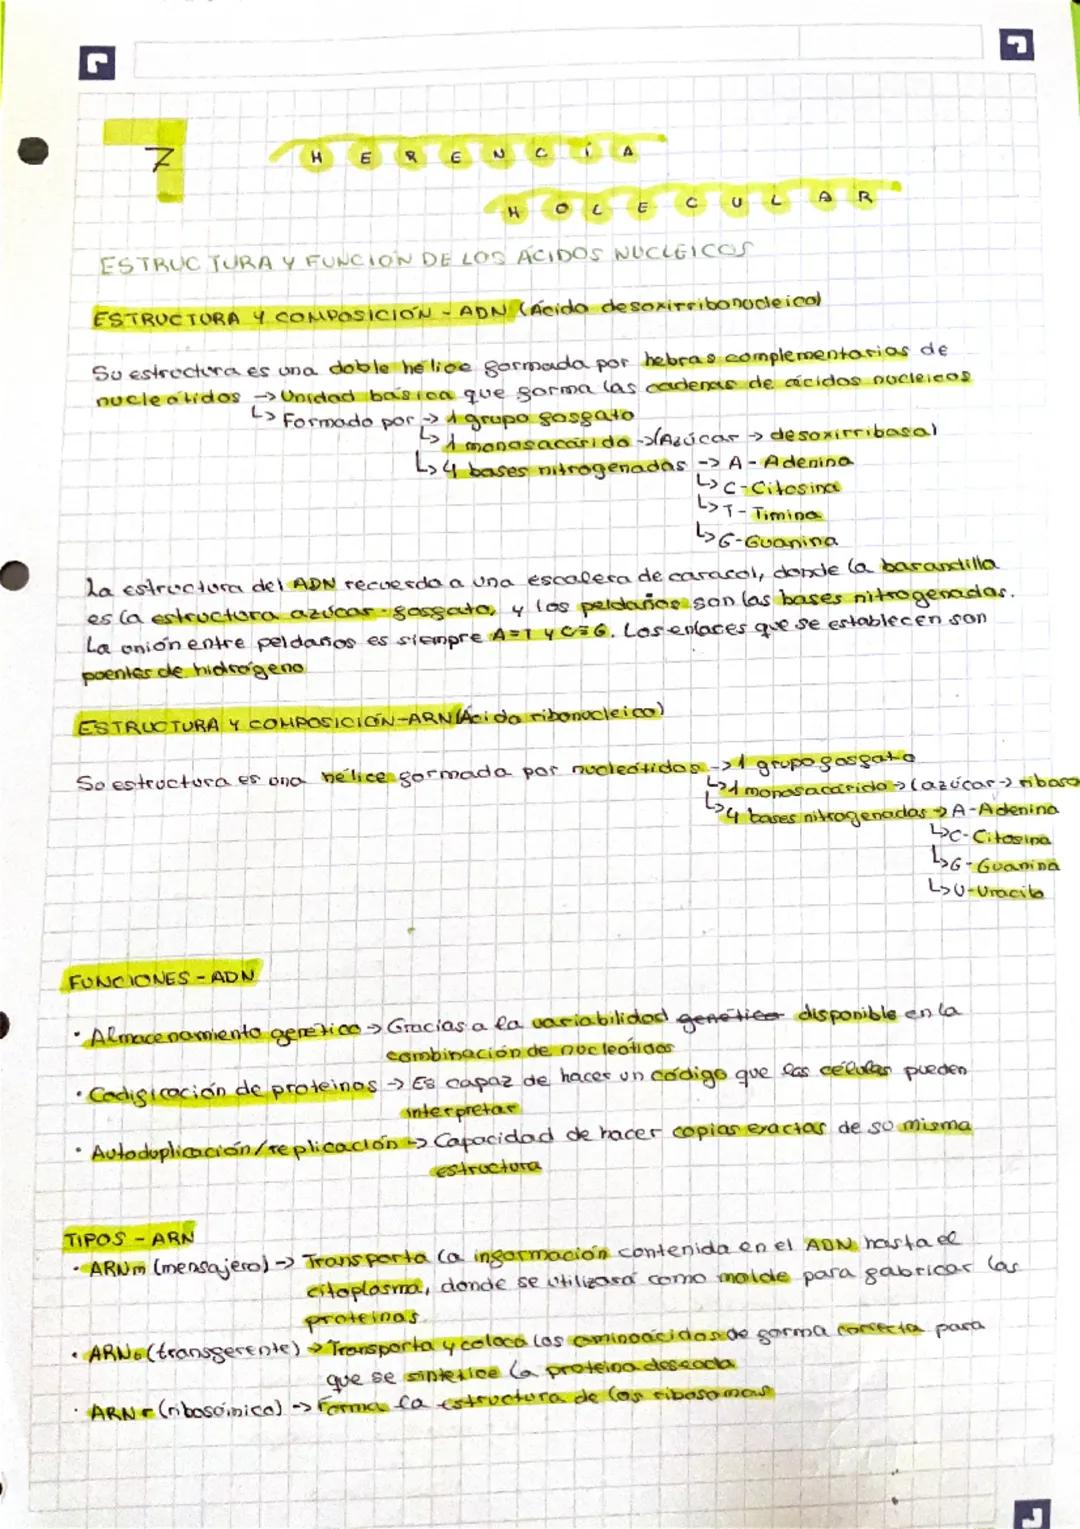 7 HERENCIA
MOLECULAR
ESTRUCTURA Y FUNCIÓN DE LOS ÁCIDOS NUCLEICOS
ESTRUCTURA Y COMPOSICIÓN - ADN (Ácido desoxirribonucleico)
Su estructura es una doble hélice formada por hebras complementarias de
nucleótidos → Unidad básica que forma las cadenas de ácidos nucleicos
↳ Formado por → 1 grupo fosfato
↳ 1 monosacárido → (Azúcar → desoxirribosa)
↳ 4 bases nitrogenadas → A - Adenina
↳ C - Citosina
↳ T - Timina
↳ G - Guanina
La estructura del ADN recuerda a una escalera de caracol, donde la barandilla
es la estructura azúcar - fosfato, y los peldaños son las bases nitrogenadas.
La unión entre peldaños es siempre A=T y C≡G. Los enlaces que se establecen son
puentes de hidrógeno
ESTRUCTURA Y COMPOSICIÓN - ARN (Ácido ribonucleico)
Su estructura es una hélice formada por nucleótidos → 1 grupo fosfato
↳ 1 monosacárido → (azúcar → ribosa
↳ 4 bases nitrogenadas → A - Adenina
↳ C - Citosina
↳ G - Guanina
↳ U - Uracilo
FUNCIONES - ADN
· Almacenamiento genético → Gracias a la variabilidad genética disponible en la
combinación de nucleótidos
· Codificación de proteínas → Es capaz de hacer un código que las células pueden
interpretar
· Autoduplicación/replicación → Capacidad de hacer copias exactas de su misma
estructura
TIPOS - ARN
· ARNm (mensajero) → Transporta la información contenida en el ADN hasta el
citoplasma, donde se utilizará como molde para fabricar las
proteínas.
· ARNt (transferente) → Transporta y coloca los aminoácidos de forma correcta para
que se sintetice la proteína deseada
· ARNr (ribosómico) → Forma la estructura de los ribosomas